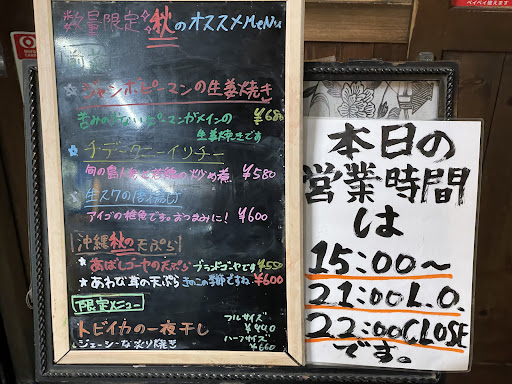 数量限定 秋のオススメMeNu
ジャンボピーマンの生姜焼き
苦みの少ないピーマンがメインの ¥680
生姜焼きです
チデークニーイリチー
旬の島人参の炒め煮 ¥580
生スクの唐揚げ
アイゴの稚魚です。おつまみに! ¥600
沖縄秋の天ぷら
あばしゴーヤの天ぷら ブランドゴーヤです ¥550
あわび茸の天ぷら きのこの季節ですね ¥600
限定メニュー
トビイカの一夜干し フルサイズ ¥940
ジューシーな炙り焼き ハーフサイズ ¥660
本日の
営業時間
は
15:00〜
21:00 L.O.
22:00 CLOSE
です。